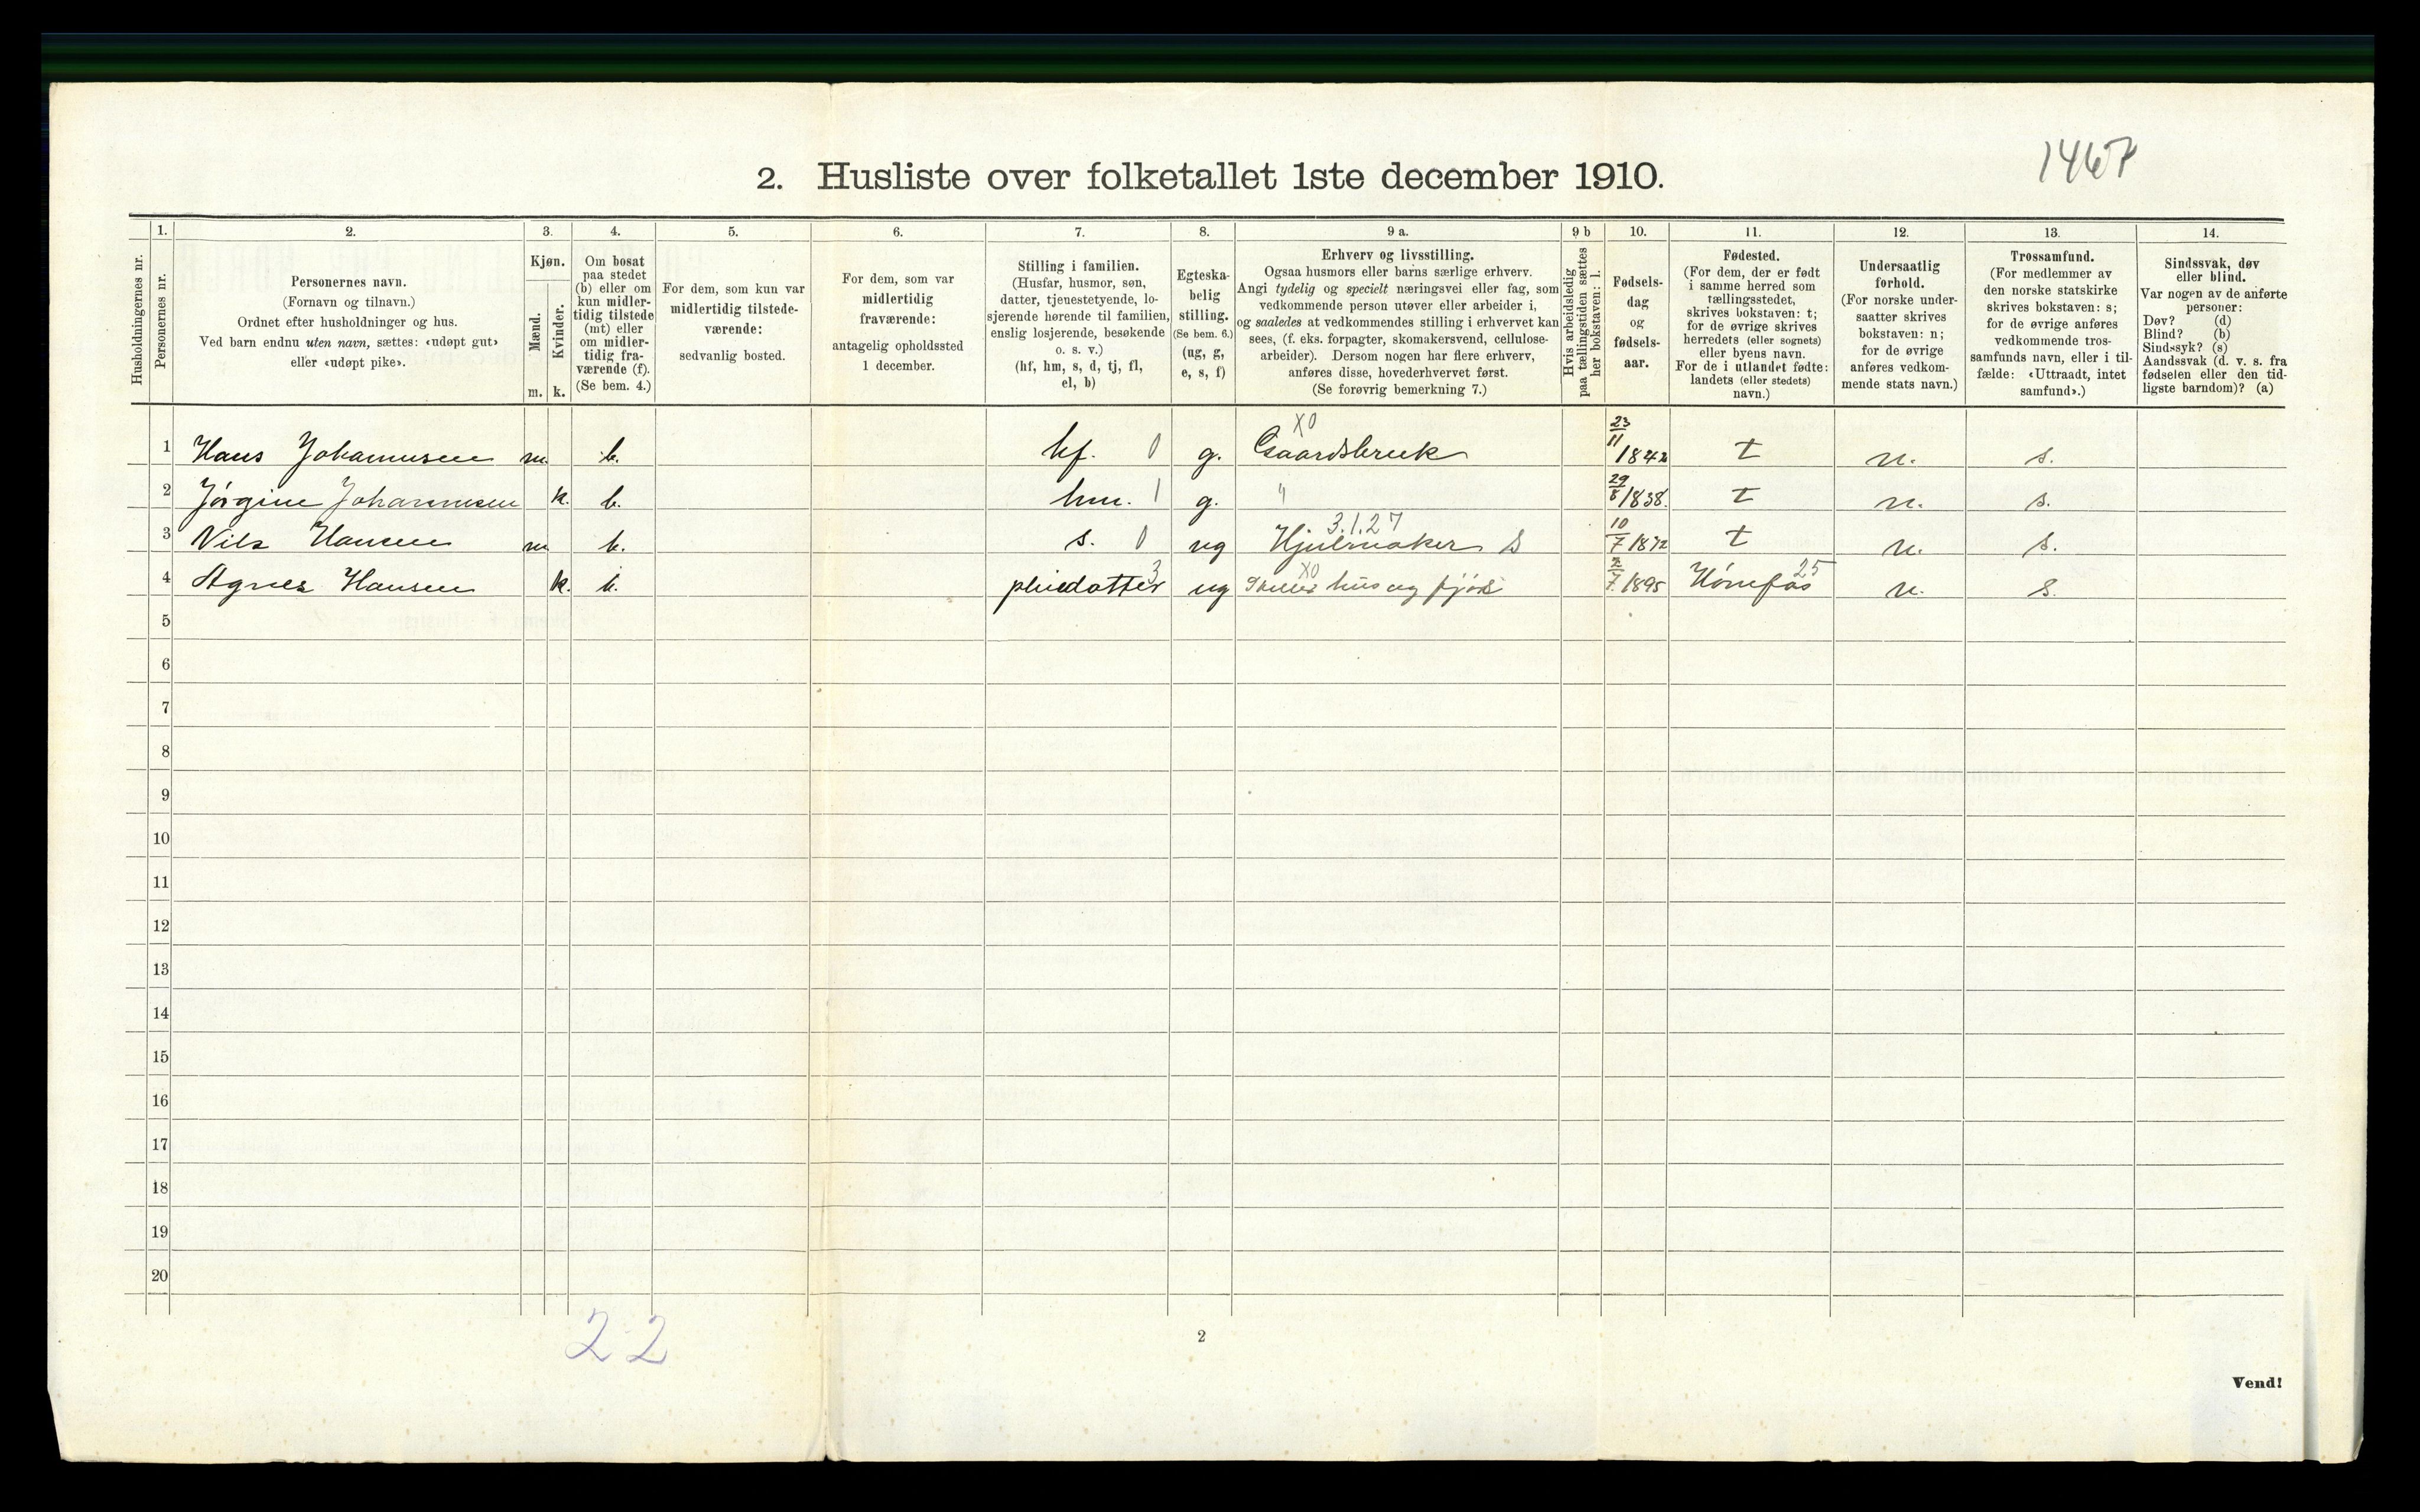 1467
2. Husliste over folketallet 1ste december 1910.
Husholdningernes nr.
1.
Personernes nr.
2.
Personernes navn.
(Fornavn og tilnavn.)
Ordnet efter husholdninger og hus.
Ved barn endnu uten navn, sættes: «udøpt gut»
eller «udøpt pike».
3.
Kjøn.
Mænd.
Kvinder.
m. k.
4.
Om bosat
paa stedet
(b) eller om
kun midler-
tidig tilstede
(mt) eller
om midler-
tidig fra-
værende (f).
(Se bem. 4.)
5.
For dem, som kun var
midlertidig tilstede-
værende:
sedvanlig bosted.
6.
For dem, som var
midlertidig
fraværende:
antagelig opholdssted
1 december.
7.
Stilling i familien.
(Husfar, husmor, søn,
datter, tjenestetyende, lo-
sjerende hørende til familien,
enslig losjerende, besøkende
o. s. v.)
(hf, hm, s, d, tj, fl,
el, b)
8.
Egteska-
belig
stilling.
(Se bem. 6.)
(ug, g,
e, s, f)
9 a.
Erhverv og livsstilling.
Ogsaa husmors eller barns særlige erhverv.
Angi tydelig og specielt næringsvei eller fag, som
vedkommende person utøver eller arbeider i,
og saaledes at vedkommendes stilling i erhvervet kan
sees, (f. eks. forpagter, skomakersvend, cellulose-
arbeider). Dersom nogen har flere erhverv,
anføres disse, hovederhvervet først.
(Se forøvrig bemerkning 7.)
9 b
Hvis arbeidsledig
paa tællingstiden sættes
her bokstaven: l.
10.
Fødsels-
dag
og
fødsels-
aar.
11.
Fødested.
(For dem, der er født
i samme herred som
tællingsstedet,
skrives bokstaven: t;
for de øvrige skrives
herredets (eller sognets)
eller byens navn.
For de i utlandet fødte:
landets (eller stedets)
navn.)
12.
Undersaatlig
forhold.
(For norske under-
saatter skrives
bokstaven: n;
for de øvrige
anføres vedkom-
mende stats navn.)
13.
Trossamfund.
(For medlemmer av
den norske statskirke
skrives bokstaven: s;
for de øvrige anføres
vedkommende tros-
samfunds navn, eller i til-
fælde: «Uttraadt, intet
samfund».)
14.
Sindssvak, døv
eller blind.
Var nogen av de anførte
personer:
Døv? (d)
Blind? (b)
Sindssyk? (s)
Aandssvak (d. v. s. fra
fødselen eller den tid-
ligste barndom)? (a)
1 Hans Johannesen m. b. hf. 0 g. X0 Gaardsbruk 23/11 1842 t n. s.
2 Jørgine Johannesen k. b. hm. 1 g. " 29/8 1838. t n. s.
3 Nils Hansen m b. s. 0 ug 3.1.27 Hjulmaker S 10/7 1872 t n. s.
4 Agnes Hansen k. b. pleiedatter 3 ug X0 Steller hus og fjøs 2/7 1895 Hønefos 25 n. s.
5
6
7
8
9
10
11
12
13
14
15
16
17
18
19
20
2 2
2
Vend!